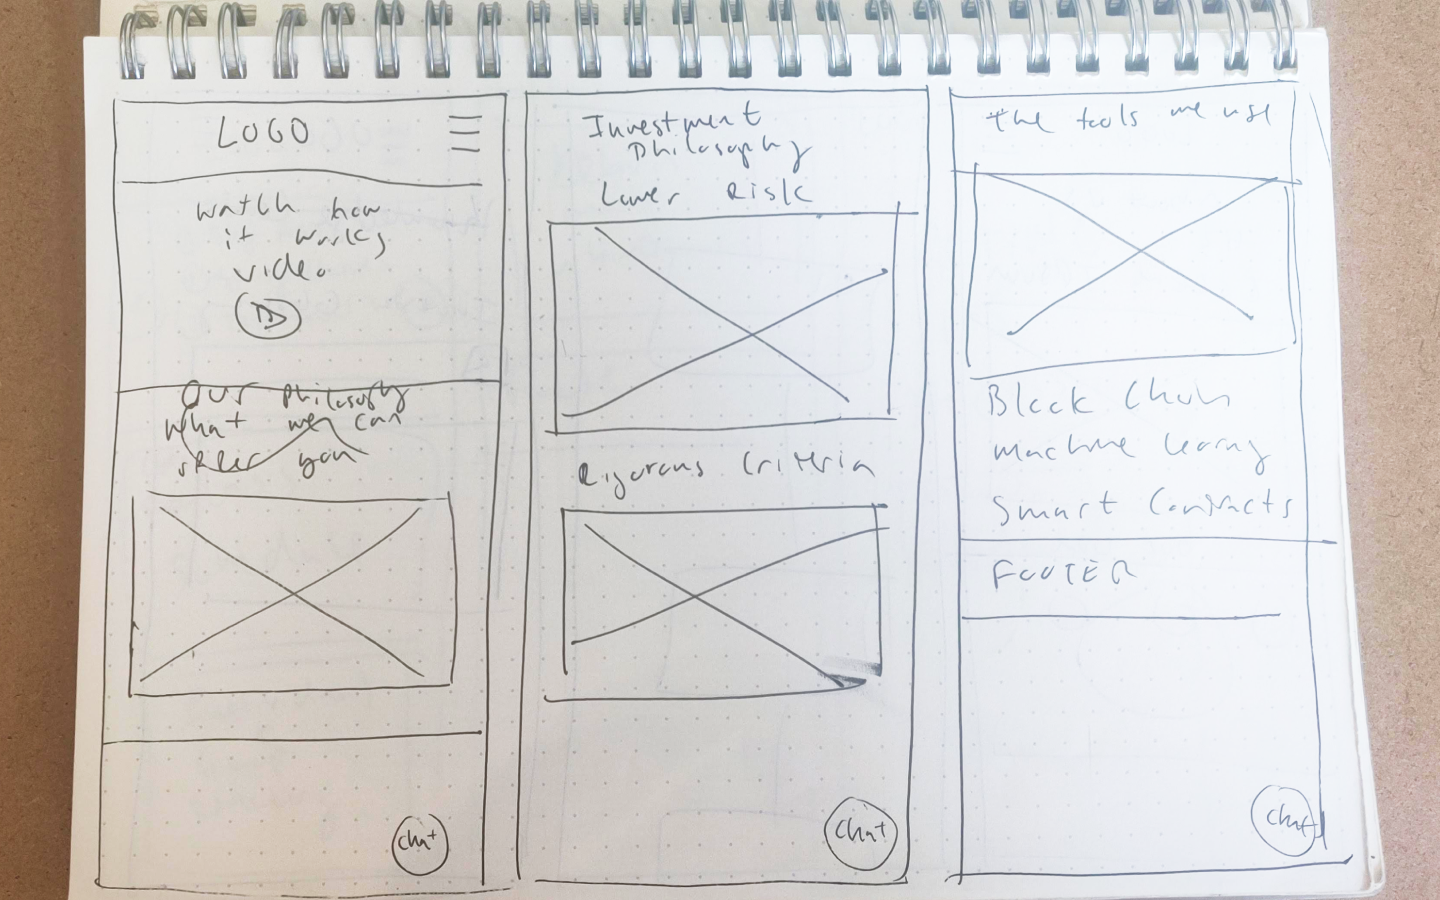 LOGO
watch how
it works
video
Our Philosophy
What we can
offer you
chat
Investment
Philosophy
Lower Risk
Rigorous Criteria
Chat
The tools we use
Block Chain
Machine learng
Smart Contracts
FOOTER
Chat